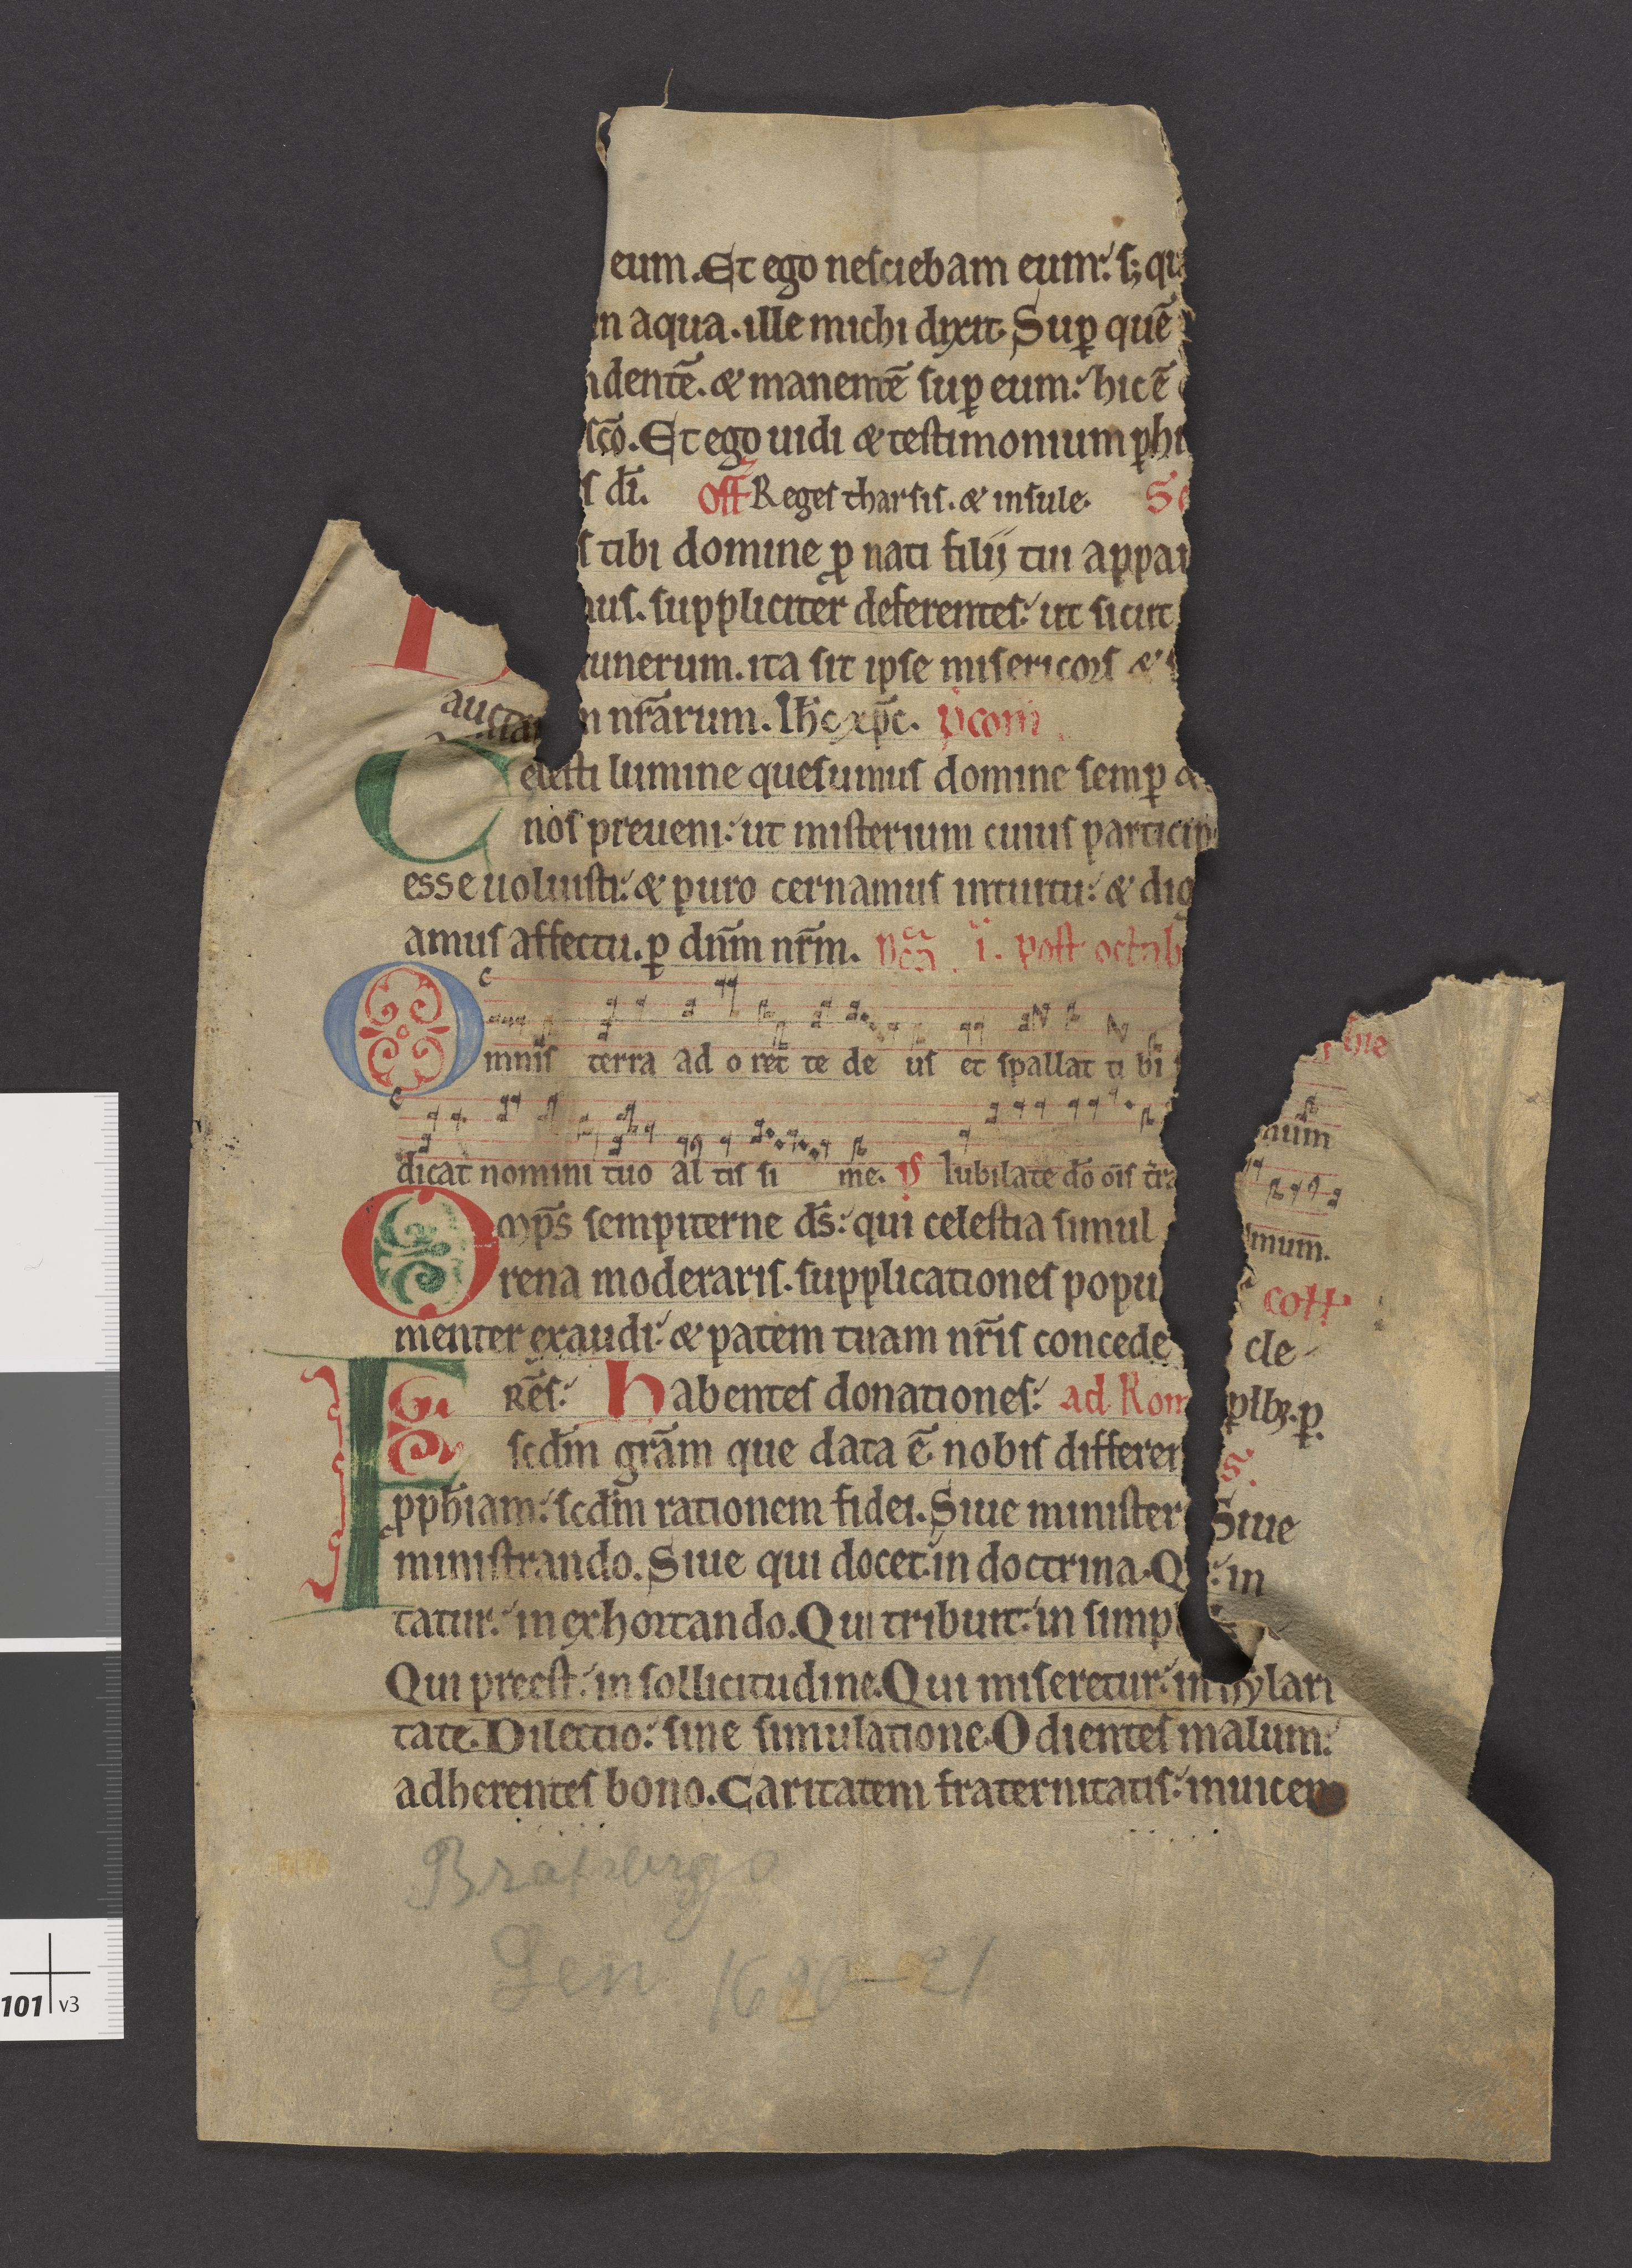 eum. Et ego nesciebam eum: s; qu
in aqua. ille michi dixit. Sup̲ quē
ndentē. & manentē sup̲ eum: hic ē
sc̄o. Et ego uidi & testimonium p̲hi
s dī. Off Reges tharsis. & insule. Se
s tibi domine ꝓ nati filij tui appar
us. suppliciter deferentes: ut sicut
unerum. ita sit ipse misericors &
auct
n nr̄arum. Ih̄c xp̄c. p̄com
Celesti lumine quesumus domine semp̲ &
nos preueni: ut misterium cuius particip
esse uoluisti: & puro cernamus intuitu: & dig
amus affectu. p̲ dn̄m nr̄m. i. post octab
Omnis terra ad o ret te de us et spallat ti bi
num
dicat nomini tuo al tis si me. ps Iubilate dō ōis t̄ra
mum.
Omp̄s sempiterne ds̄: qui celestia simul cott
rena moderaris. supplicationes popu cle
menter exaudi: & pacem tuam nr̄is concede
FRēs: habentes donationes: ad Rom
scdm̄ grām que data ē nobis differen s.
pph̄iam: scdm̄ rationem fidei. Siue minister Siue
ministrando. Siue qui docet: in doctrina. Q : in
tatur: in exhortando. Qui tribuit: in simpl
Qui preest: in sollicitudine. Qui miseretur: in hylari
tate. Dilectio: sine simulatione. Odientes malum:
adherentes bono. Caritatem fraternitatis: inuicem
Bratsberg
Len 1620-21
101 v3